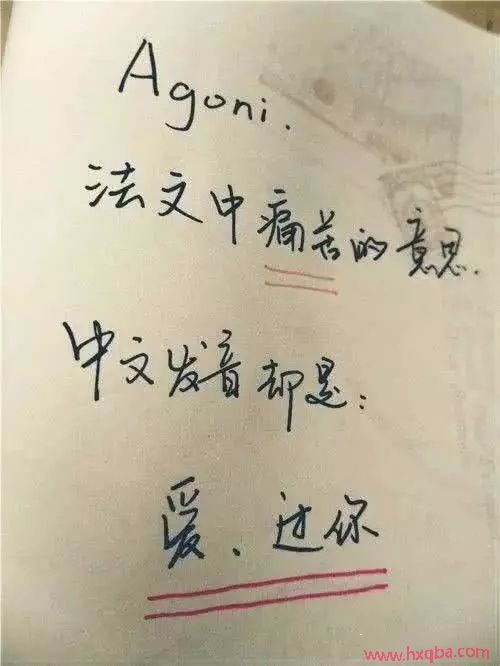 Agoni.
法文中痛苦的意思.
中文发音却是：
爱、过你
www.hxqba.com